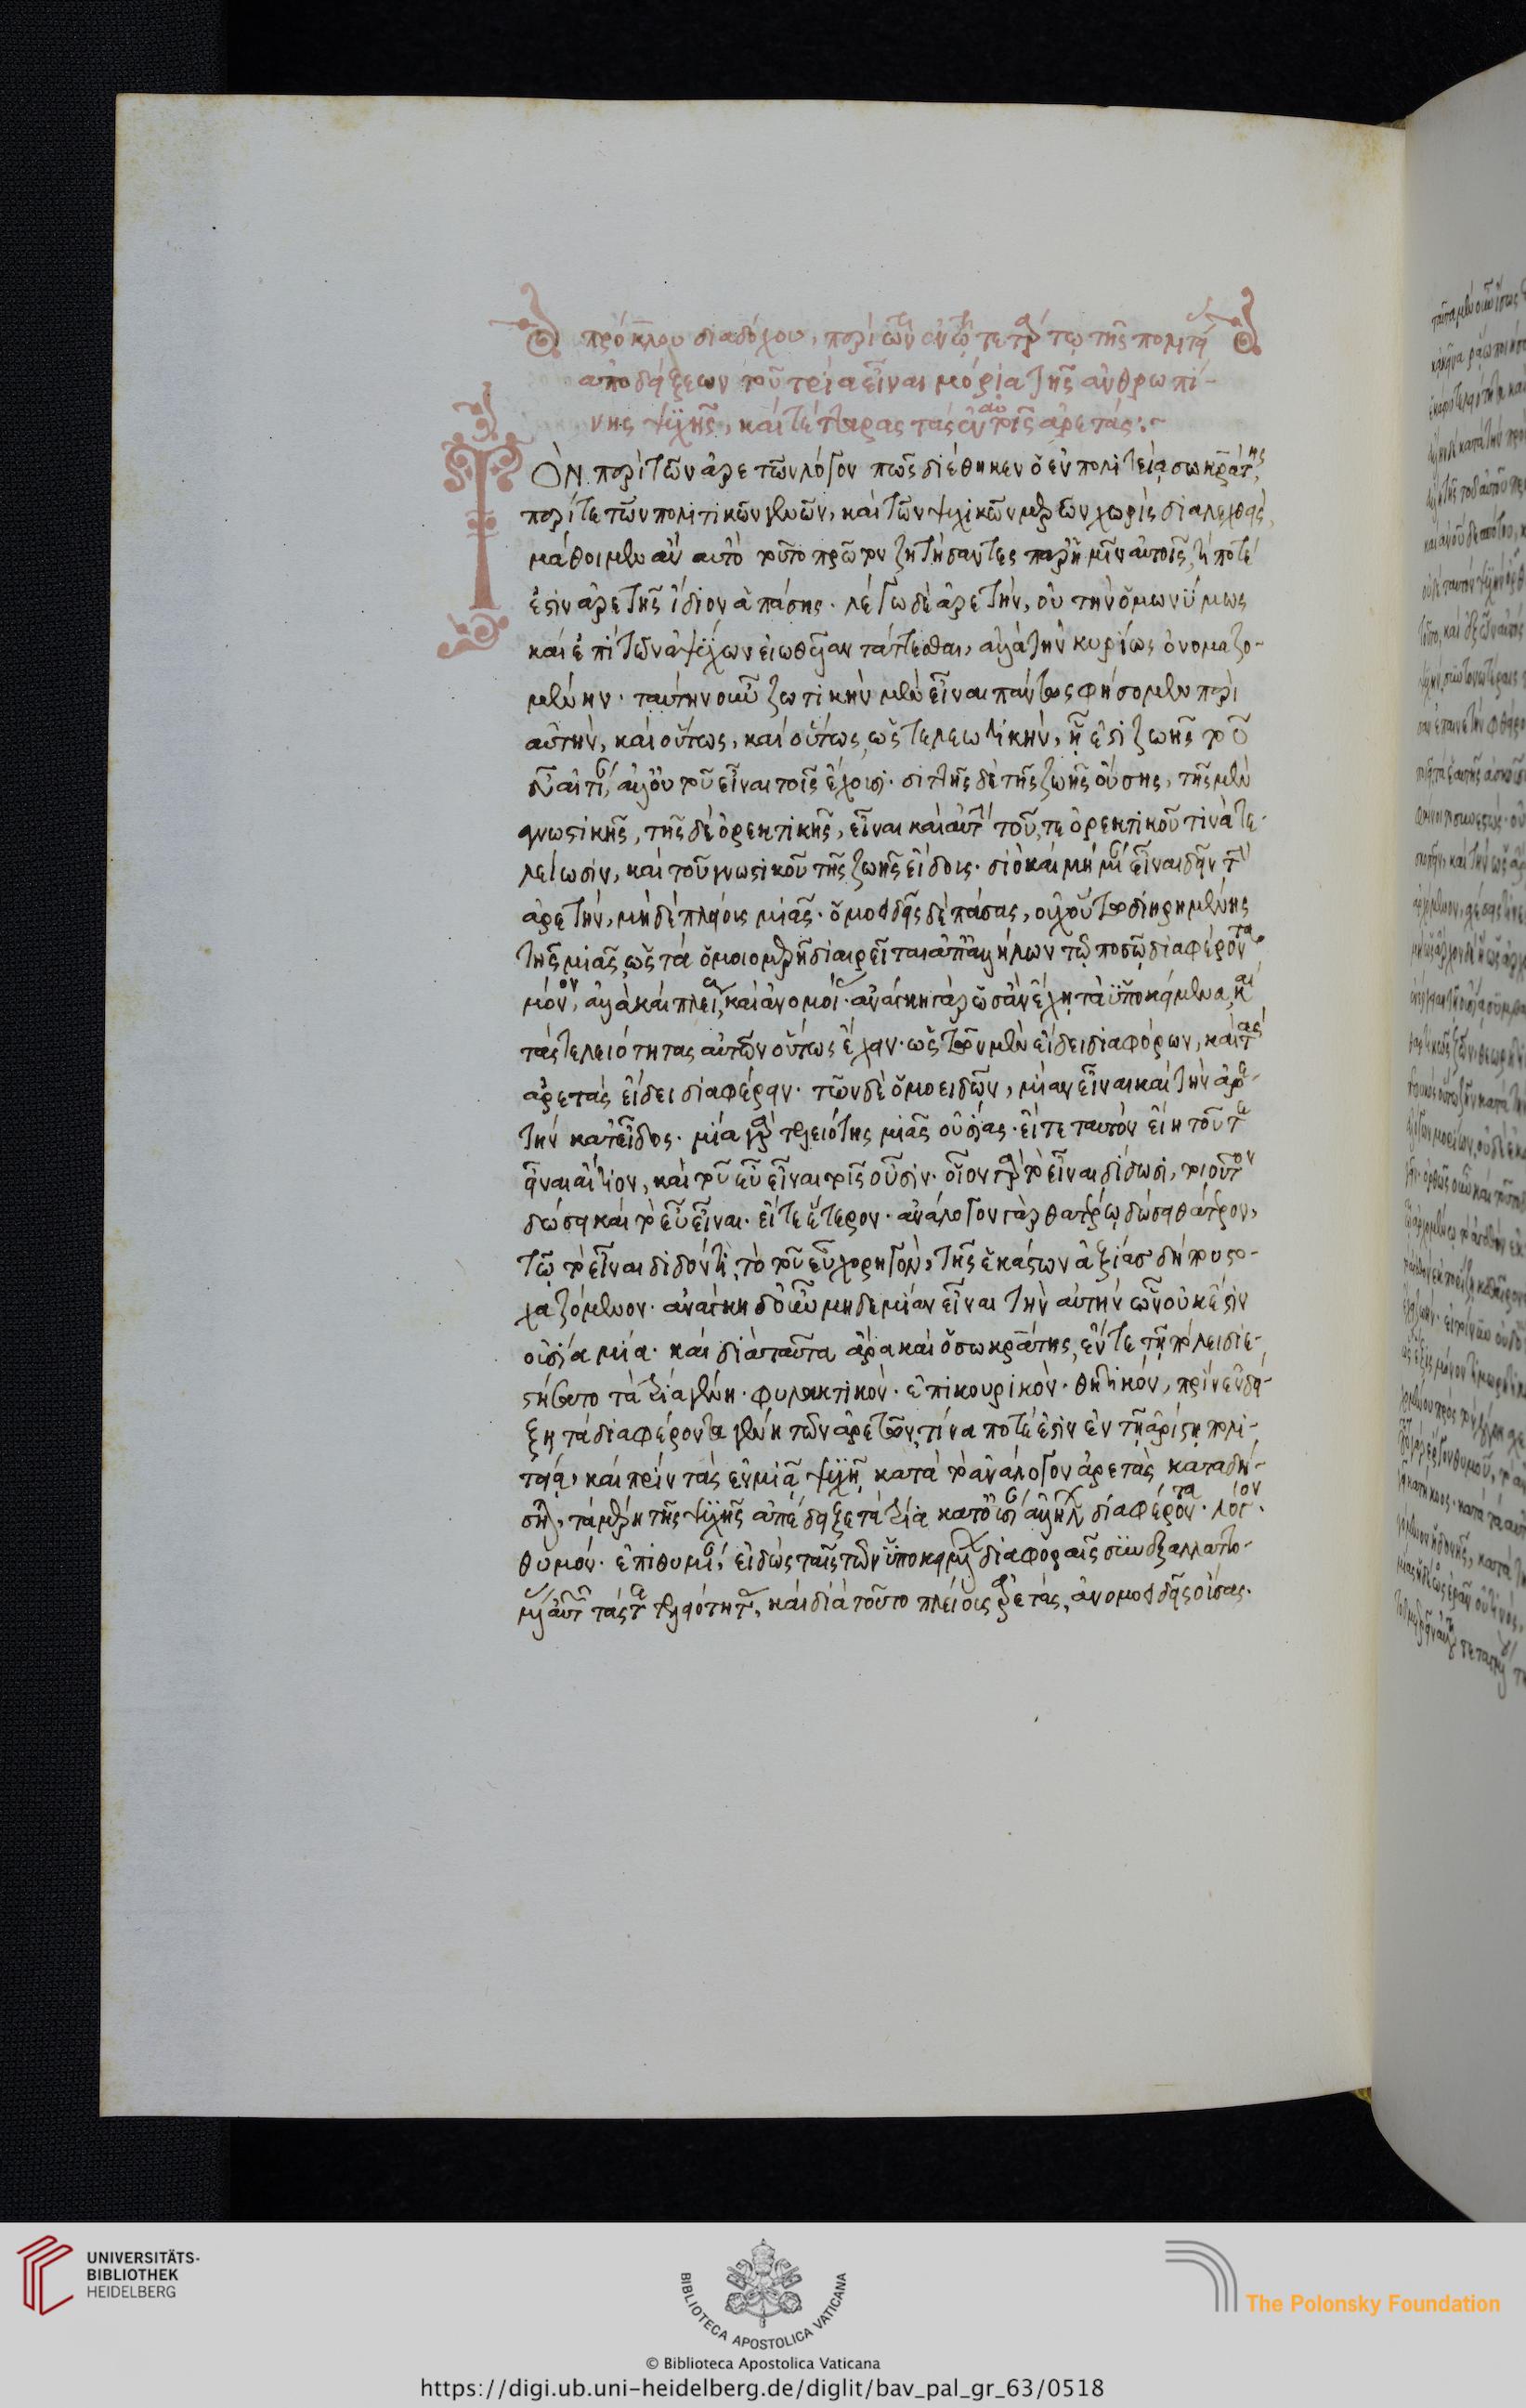 πρόκλου διαδόχου, περὶ τῶν ἐν τῷ τετάρτῳ τῆς πολιτεί
αποδείξεων τοῦ τρία εἶναι μόρια τῆς ἀνθρωπί-
νης ψυχῆς, καὶ τέτταρας τὰς ἐν αὐτοῖς ἀρετάς:~
ΤὸΝ περὶ τῶν ἀρετῶν λόγον πῶς διέθηκεν ὁ ἐν πολιτείᾳ σωκράτης,
περί τε τῶν πολιτικῶν γενῶν, καὶ τῶν ψυχικῶν μερῶν χωρὶς διαλεχθείς,
μάθοιμεν ἂν αὐτὸ τοῦτο πρῶτον ζητήσαντες παρ' ἡμῖν αὐτοῖς, τί ποτέ
ἐστιν ἀρετῆς ἴδιον ἁπάσης. λέγω δὲ ἀρετήν, οὐ τὴν ὁμωνύμως
καὶ ἐπὶ τῶν ἀψύχων εἰωθεῖαν τάττεσθαι, ἀλλὰ τὴν κυρίως ὀνομαζο-
μένην. ταύτην οὖν ζωτικὴν μὲν εἶναι πάντως φήσομεν περὶ
αὐτήν, καὶ οὕτως, καὶ οὕτως, ὡς τελεωτικήν, ἥ ἐστι ζωῆς τοῦ
εὖ αἰτία, ἀλλ' οὐ τοῦ εἶναι τοῖς ἔχουσι. διττῆς δὲ τῆς ζωῆς οὔσης, τῆς μὲν
γνωστικῆς, τῆς δὲ ὀρεκτικῆς, εἶναι καὶ αὐτὴν τοῦ, τε ὀρεκτικοῦ τινὰ τε-
λείωσιν, καὶ τοῦ γνωστικοῦ τῆς ζωῆς εἴδους. διὸ καὶ μὴ μίαν εἶναι δεῖν τὴν
ἀρετήν, μηδὲ πλείους μιᾶς. ὁμοειδεῖς δὲ πάσας, οὐχ οὕτω διῃρημένης
τῆς μιᾶς, ὡς τὰ ὁμοιομερῆ διαιρεῖται ἀπ' ἀλλήλων τῷ ποσῷ διαφέροντα
μόνον, ἀλλὰ καὶ πλείους καὶ ἀνομοίους. ἀνάγκη γὰρ ὡς ἂν ἔχῃ τὰ ὑποκείμενα, καὶ
τὰς τελειότητας αὐτῶν οὕτως ἔχειν. ὡς τῶν μὲν εἴδει διαφόρων, καὶ τὰς
ἀρετὰς εἴδει διαφέρειν. τῶν δὲ ὁμοειδῶν, μίαν εἶναι καὶ τὴν ἀρε-
τὴν κατ' εἶδος. μία γὰρ τελειότης μιᾶς οὐσίας. εἴτε ταυτὸν εἴη τοῦ τε
εἶναι αἴτιον, καὶ τοῦ εὖ εἶναι τοῖς οὖσιν. οἷον γὰρ τὸ εἶναι δίδωσι, τοιοῦτον
δώσει καὶ τὸ εὖ εἶναι. εἴτε ἕτερον. ἀνάλογον γὰρ θατέρῳ δώσει θάτερον,
τῷ τὸ εἶναι διδόντι, τὸ τοῦ εὖ χορηγόν, τῆς ἑκάστων ἀξίας δήπου στο-
χαζόμενον. ἀνάγκη δ' οὖν μηδεμίαν εἶναι τὴν αὐτὴν ὧν οὐκ ἔστιν
οὐσία μία. καὶ διὰ ταῦτα ἄρα καὶ ὁ σωκράτης, ἔν τε τῇ πόλει διε-
στήσατο τὰ τρία γένη. φυλακτικόν. ἐπικουρικόν. θητικόν, πρὶν ἐνδεί-
ξῃ τὰ διαφέροντα γένη τῶν ἀρετῶν, τίνα ποτέ ἐστιν ἐν τῇ ἀρίστῃ πολι-
τείᾳ, καὶ πρὶν τὰς ἐν μιᾷ ψυχῇ κατὰ τὸ ἀνάλογον ἀρετὰς καταδή-
σῃ, τὰ μέρη τῆς ψυχῆς ἀπέδειξε τὰ τρία κατ' οὐσίαν ἀλλήλων διαφέροντα. λόγον.
θυμόν. ἐπιθυμίαν, εἰδὼς ταῖς τῶν ὑποκειμένων διαφοραῖς συνεξαλλαττο-
μένας αὐτῶν τάς τε τελειότητας, καὶ διὰ τοῦτο πλείους ἀρετάς, ἀνομοειδεῖς οὔσας.
UNIVERSITÄTS-
BIBLIOTHEK
HEIDELBERG
BIBLIOTECA APOSTOLICA VATICANA
The Polonsky Foundation
© Biblioteca Apostolica Vaticana
https://digi.ub.uni-heidelberg.de/diglit/bav_pal_gr_63/0518